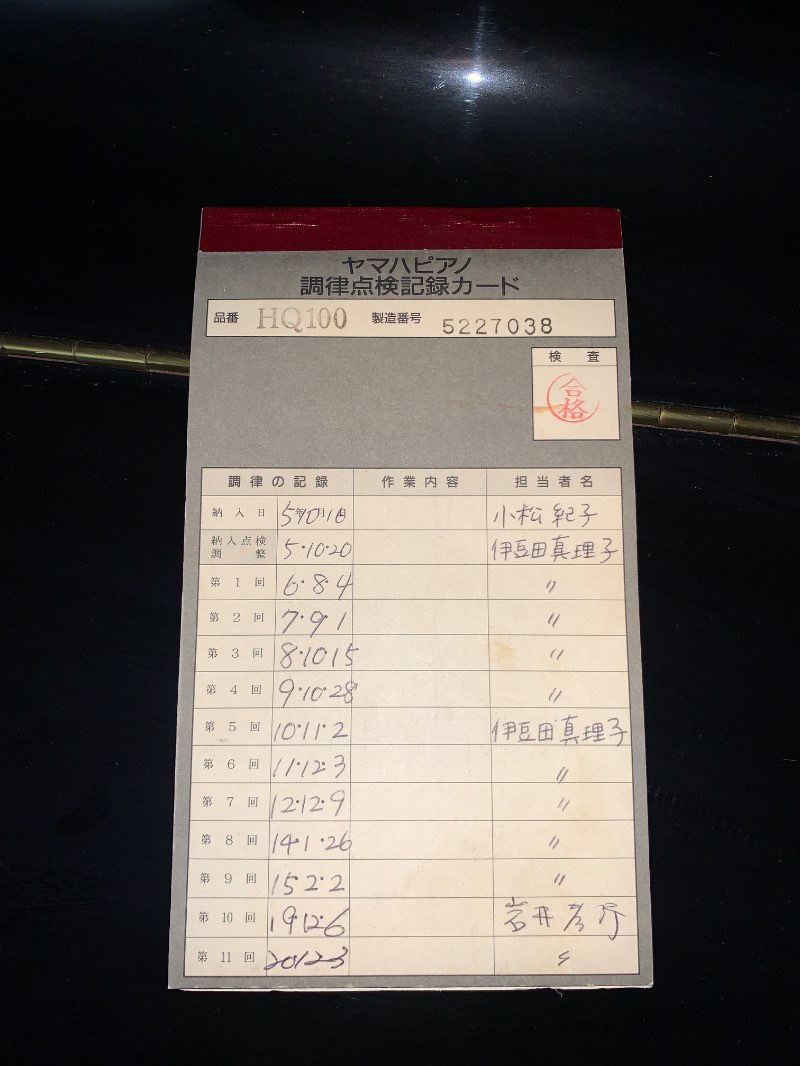 ヤマハピアノ
調律点検記録カード
品番 HQ100 製造番号 5227038
検査
合格
調律の記録 作業内容 担当者名
納入日 5年10月1日 小松紀子
納入点検調整 5・10・20 伊豆田真理子
第1回 6・8・4 〃
第2回 7・9・1 〃
第3回 8・10・15 〃
第4回 9・10・28 〃
第5回 10・11・2 伊豆田真理子
第6回 11・12・3 〃
第7回 12・12・9 〃
第8回 14・1・26 〃
第9回 15・2・2 〃
第10回 19・12・6 岩井
第11回 20・12・3 〃